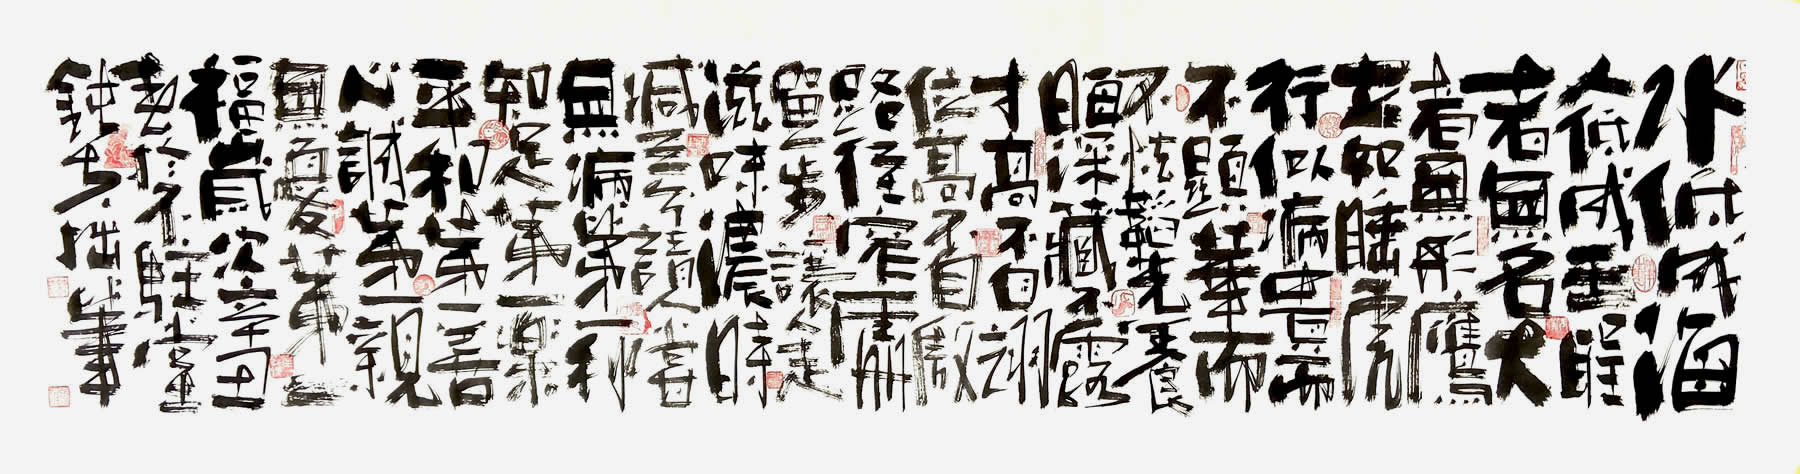 水低成海
人低成王聖
者無名大
者無形鷹
立如睡虎
行似病貴而
不顯華而
不炫韜光養
晦深藏不露
才高不自詡
位高不自傲
路徑窄處
留一步讓人走
滋味濃時
減三分讓人嗜
無病第一利
知足第一樂
平和第一善
心誠第一親
無有愛第一
福歲次辛丑
春於不駐堂
拙筆